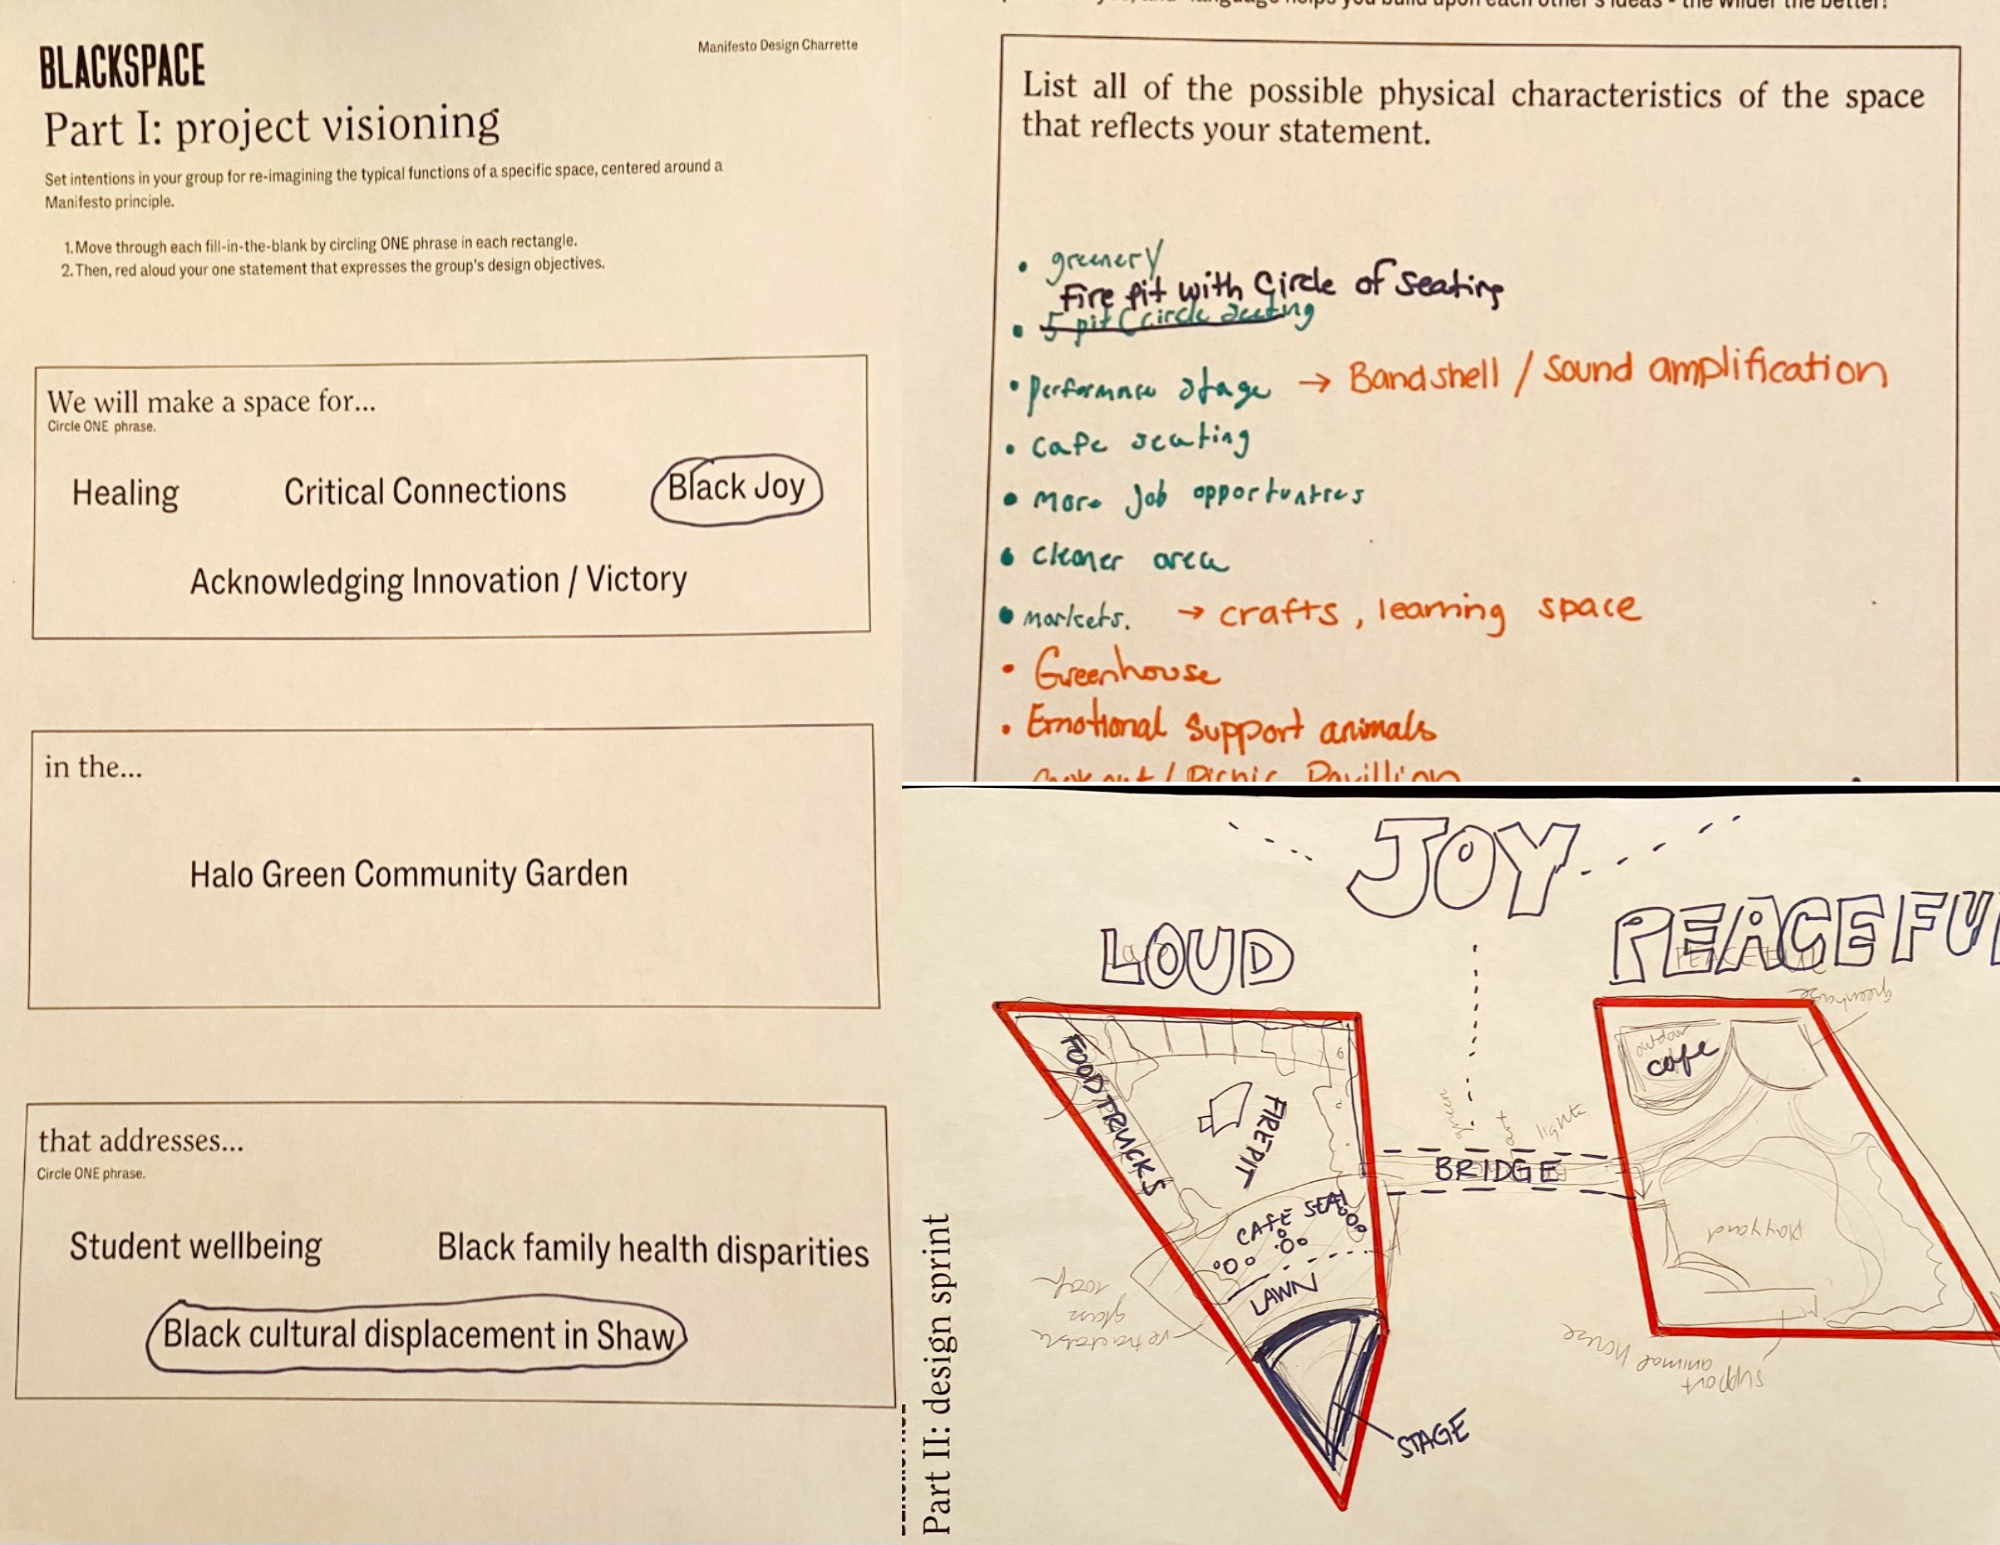 BLACKSPACE
Manifesto Design Charrette
Part I: project visioning
Set intentions in your group for re-imagining the typical functions of a specific space, centered around a
Manifesto principle.
1. Move through each fill-in-the-blank by circling ONE phrase in each rectangle.
2. Then, red aloud your one statement that expresses the group's design objectives.
We will make a space for...
Circle ONE phrase.
Healing
Critical Connections
Black Joy
Acknowledging Innovation / Victory
in the...
Halo Green Community Garden
that addresses...
Circle ONE phrase.
Student wellbeing
Black family health disparities
Black cultural displacement in Shaw
language helps you build upon each other's ideas - the wilder the better!
List all of the possible physical characteristics of the space
that reflects your statement.
• greenery
Fire pit with Circle of Seating
• 5 pit (circle seating
• performance stage → Bandshell / Sound amplification
• cafe seating
• more job opportunities
• cleaner area
• markets. → crafts, learning space
• Greenhouse
• Emotional Support animals
Cook out / Picnic Pavillion
Part II: design sprint
JOY
LOUD
PEACEFUL
PEACEFUL
greenhouse
FOOD TRUCKS
FIREPIT
outdoor
cafe
green
art
lights
BRIDGE
CAFE SEAT
LAWN
playyard
retractable
glass
roof
support
animal house
STAGE